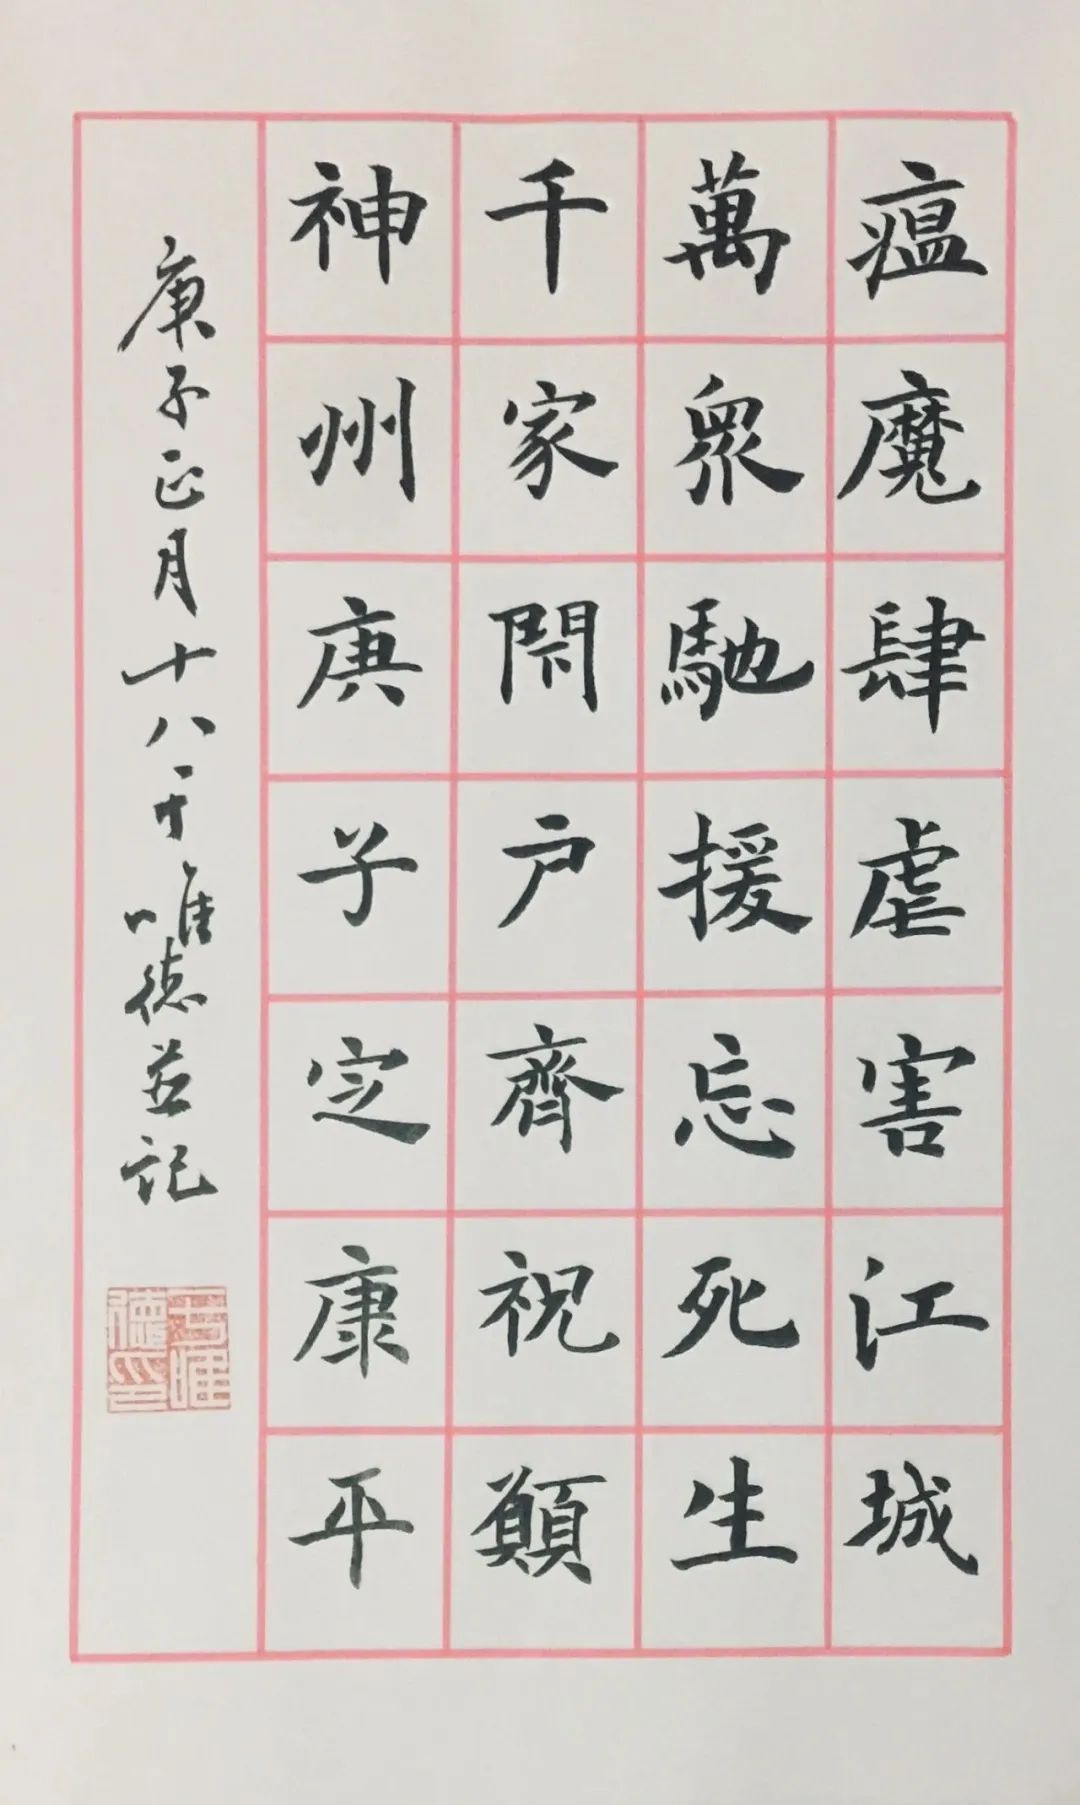 瘟魔肆虐害江城
萬眾馳援忘死生
千家閇户齊祝願
神州庚子定康平
庚子正月十八于唯德並記
唯德印